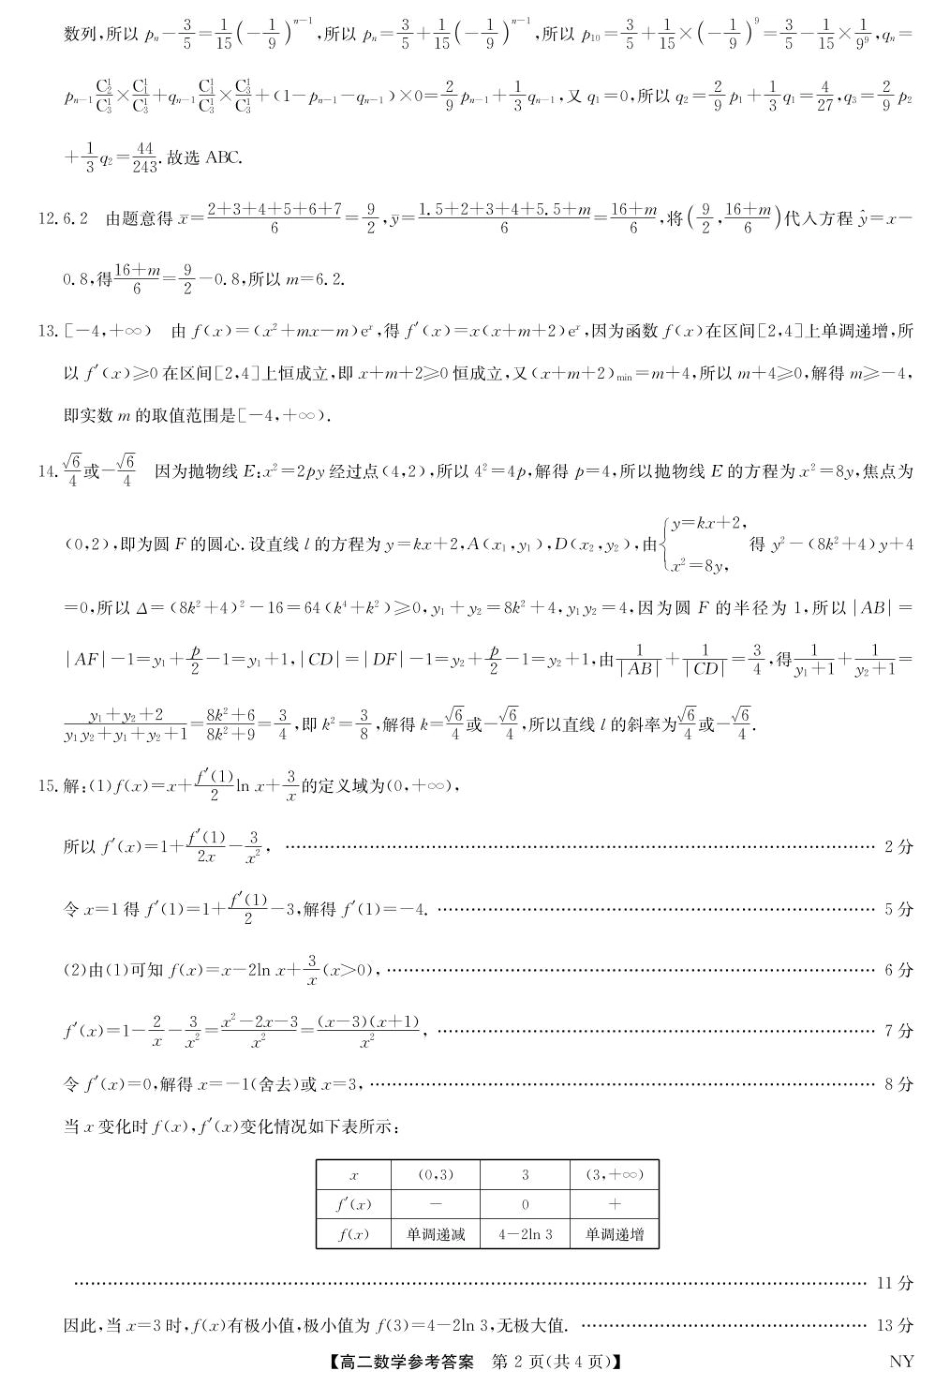 数列,所以 pₙ−3/5=1/15(−1/9)ⁿ⁻¹,所以 pₙ=3/5+1/15(−1/9)ⁿ⁻¹,所以 p₁₀=3/5+1/15×(−1/9)⁹=3/5−1/15×1/9⁹,qₙ=
pₙ₋₁C₂¹/C₃¹×C₁¹/C₃¹+qₙ₋₁C₁¹/C₃¹×C₃¹/C₃¹+(1−pₙ₋₁−qₙ₋₁)×0=2/9pₙ₋₁+1/3qₙ₋₁,又 q₁=0,所以 q₂=2/9p₁+1/3q₁=4/27,q₃=2/9p₂
+1/3q₂=44/243.故选 ABC.
12.6.2 由题意得 x̄=(2+3+4+5+6+7)/6=9/2,ȳ=(1.5+2+3+4+5.5+m)/6=(16+m)/6,将(9/2,(16+m)/6)代入方程 ŷ=x−
0.8,得(16+m)/6=9/2−0.8,所以 m=6.2.
13.[−4,+∞) 由 f(x)=(x²+mx−m)eˣ,得 f′(x)=x(x+m+2)eˣ,因为函数 f(x)在区间[2,4]上单调递增,所
以 f′(x)≥0 在区间[2,4]上恒成立,即 x+m+2≥0 恒成立,又(x+m+2)min=m+4,所以 m+4≥0,解得 m≥−4,
即实数 m 的取值范围是[−4,+∞).
14.√6/4或−√6/4 因为抛物线 E:x²=2py 经过点(4,2),所以 4²=4p,解得 p=4,所以抛物线 E 的方程为 x²=8y,焦点为
(0,2),即为圆 F 的圆心.设直线 l 的方程为 y=kx+2,A(x₁,y₁),D(x₂,y₂),由{y=kx+2, x²=8y, 得 y²−(8k²+4)y+4
=0,所以 Δ=(8k²+4)²−16=64(k⁴+k²)≥0,y₁+y₂=8k²+4,y₁y₂=4,因为圆 F 的半径为 1,所以|AB|=
|AF|−1=y₁+p/2−1=y₁+1,|CD|=|DF|−1=y₂+p/2−1=y₂+1,由1/|AB|+1/|CD|=3/4,得1/(y₁+1)+1/(y₂+1)=
(y₁+y₂+2)/(y₁y₂+y₁+y₂+1)=(8k²+6)/(8k²+9)=3/4,即 k²=3/8,解得 k=√6/4或−√6/4,所以直线 l 的斜率为√6/4或−√6/4.
15.解:(1)f(x)=x+f′(1)/2 ln x+3/x的定义域为(0,+∞),
所以 f′(x)=1+f′(1)/2x−3/x², …… 2 分
令 x=1 得 f′(1)=1+f′(1)/2−3,解得 f′(1)=−4. …… 5 分
(2)由(1)可知 f(x)=x−2ln x+3/x(x>0), …… 6 分
f′(x)=1−2/x−3/x²=(x²−2x−3)/x²=(x−3)(x+1)/x², …… 7 分
令 f′(x)=0,解得 x=−1(舍去)或 x=3, …… 8 分
当 x 变化时 f(x),f′(x)变化情况如下表所示:
x (0,3) 3 (3,+∞)
f′(x) − 0 +
f(x) 单调递减 4−2ln 3 单调递增
…… 11 分
因此,当 x=3 时,f(x)有极小值,极小值为 f(3)=4−2ln 3,无极大值. …… 13 分
【高二数学参考答案 第 2 页(共 4 页)】 NY